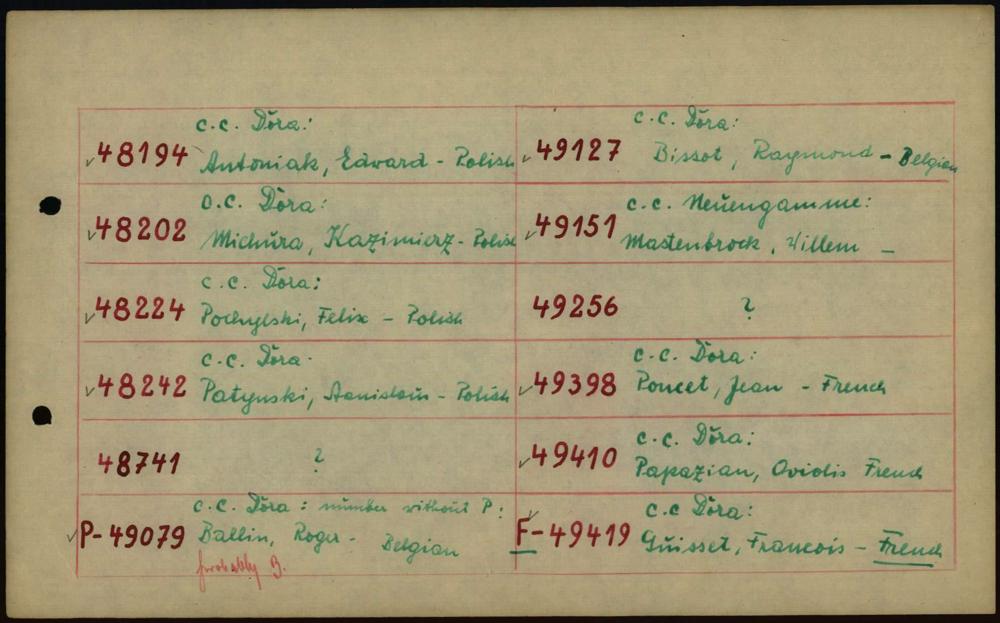 c.c. Dora:
48194 Antoniak, Edward - Polish
c.c. Dora:
48202 Michura, Kazimierz - Polish
c.c. Dora:
48224 Pochylski, Felix - Polish
c.c. Dora
48242 Patynski, Stanislaus - Polish
48741 ?
c.c. Dora: number without P:
P-49079 Ballin, Roger - Belgian
probably B.
c.c. Dora:
49127 Bissot, Raymond - Belgian
c.c. Neuengamme:
49151 Mastenbrock, Willem -
49256 ?
c.c. Dora:
49398 Poncet, Jean - French
c.c. Dora:
49410 Papazian, Oviolis French
c.c Dora:
F-49419 Guisset, Francois - French